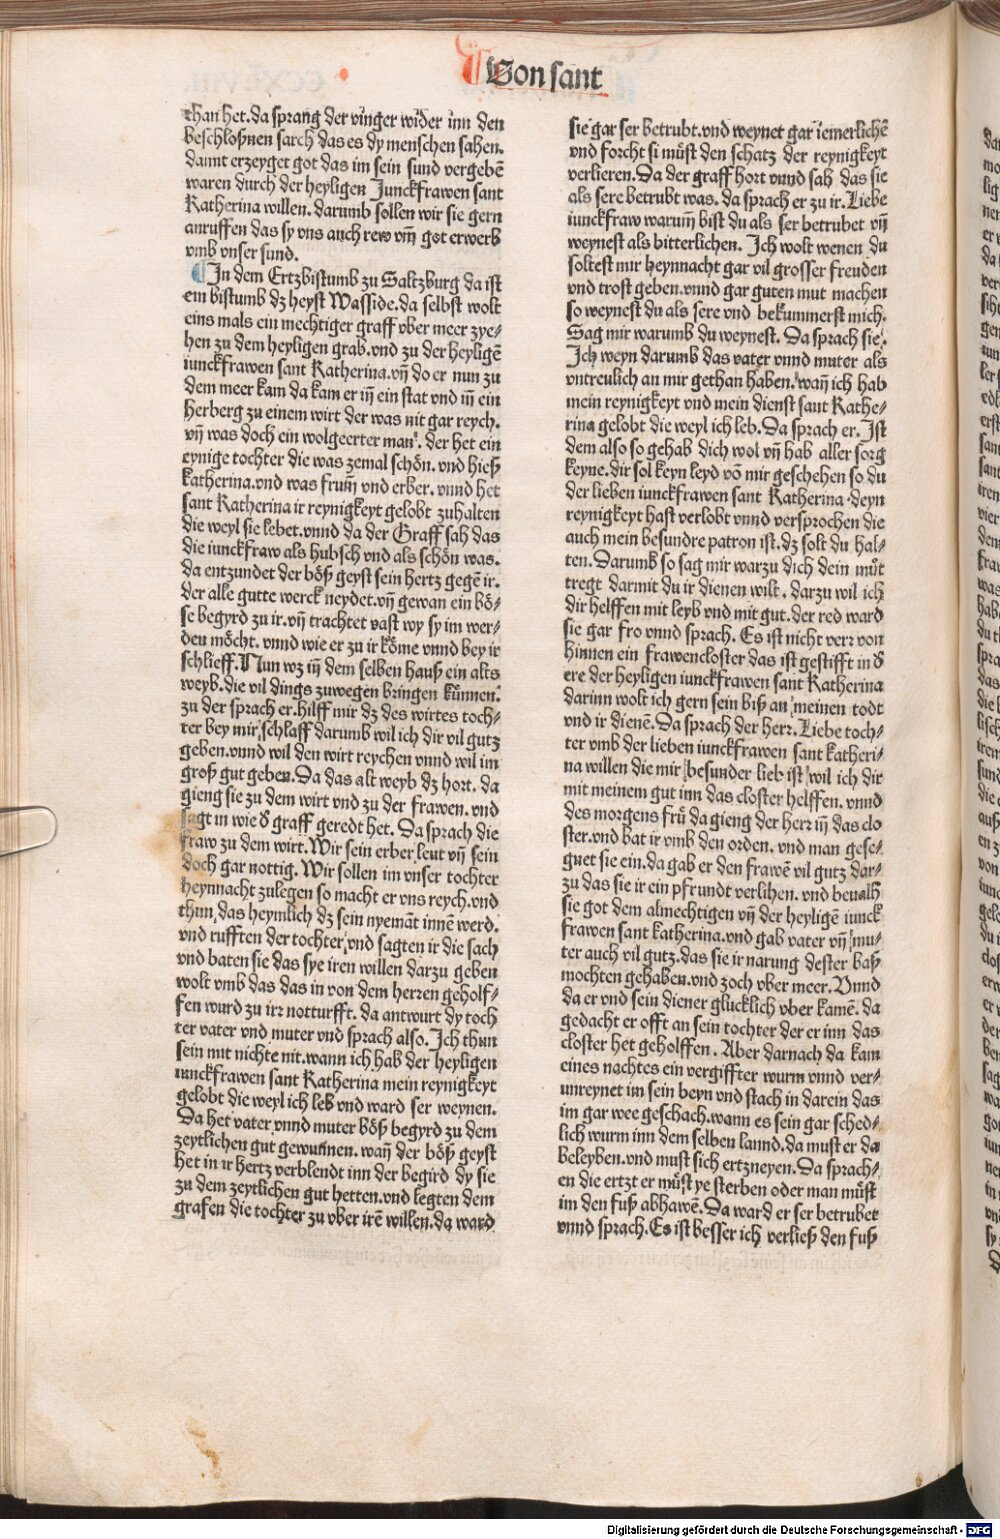 Von sant
than het. da sprang der vinger wider inn den
beschloßnen sarch das es dy menschen sahen.
damit erzeyget got das im sein sund vergebē
waren durch der heyligen Junckfrawen sant
Katherina willen. darumb sollen wir sie gern
anruffen das sy vns auch rew vm̄ got erwerb
vmb vnser sund.
In dem Ertzbistumb zu Saltzburg da ist
ein bistumb dz heyst Wasside. da selbst wolt
eins mals ein mechtiger graff vber meer zye⸗
hen zu dem heyligen grab. vnd zu der heyligē
iunckfrawen sant Katherina. vn̄ do er nun zu
dem meer kam da kam er in̄ ein stat vnd in̄ ein
herberg zu einem wirt der was nit gar reych.
vn̄ was doch ein wolgeerter man. der het ein
eynige tochter die was zemal schön. vnd hieß
katherina. vnd was frum̄ vnd erber. vnnd het
sant Katherina ir reynigkeyt gelobt zuhalten
die weyl sie lebet. vnnd da der Graff sah das
die iunckfraw als hubsch vnd als schön was.
da entzundet der böß geyst sein hertz gegē ir.
der alle gutte werck neydet. vn̄ gewan ein bö⸗
se begyrd zu ir. vn̄ trachtet vast wy sy im wer⸗
den möcht. vnnd wie er zu ir köme vnnd bey ir
schlieff. Nun wz in̄ dem selben hauß ein alts
weyb. die vil dings zuwegen bringen kunnen.
zu der sprach er. hilff mir dz des wirtes toch⸗
ter bey mir schlaff darumb wil ich dir vil gutz
geben. vnnd wil den wirt reychen vnnd wil im
groß gut geben. Da das alt weyb dz hort. da
gieng sie zu dem wirt vnd zu der frawen. vnd
sagt in wie d̕ graff geredt het. Da sprach die
fraw zu dem wirt. Wir sein erber leut vn̄ sein
doch gar nottig. Wir sollen im vnser tochter
heynnacht zulegen so macht er vns reych. vnd
thun das heymlich dz sein nyemāt innē werd.
vnd rufften der tochter vnd sagten ir die sach
vnd baten sie das sye iren willen darzu geben
wolt vmb das das in von dem herren geholf⸗
fen wurd zu irr notturfft. da antwurt dy toch
ter vater vnd muter vnd sprach also. Ich thun
sein mit nichte nit. wann ich hab der heyligen
iunckfrawen sant Katherina mein reynigkeyt
gelobt die weyl ich leb vnd ward ser weynen.
Da het vater vnnd muter böß begyrd zu dem
zeytlichen gut gewunnen. wan̄ der böß geyst
het in ir hertz verblendt inn der begird dy sie
zu dem zeytlichen gut hetten. vnd legten dem
grafen die tochter zu vber irē willen. da ward
sie gar ser betrubt. vnd weynet gar iemerlichē
vnd forcht si müst den schatz der reynigkeyt
verlieren. Da der graff hort vnnd sah das sie
als sere betrubt was. da sprach er zu ir. Liebe
iunckfraw warum̄ bist du als ser betrubet vn̄
weynest als bitterlichen. Ich wolt wenen du
soltest mir heynnacht gar vil grosser freuden
vnd trost geben. vnnd gar guten mut machen
so weynest du als sere vnd bekummerst mich.
Sag mir warumb du weynest. Da sprach sie.
Ich weyn darumb das vater vnnd muter als
vntreulich an mir gethan haben. wan̄ ich hab
mein reynigkeyt vnd mein dienst sant Kathe⸗
rina gelobt die weyl ich leb. Da sprach er. Ist
dem also so gehab dich wol vn̄ hab aller sorg
keyne. dir sol keyn leyd vō mir geschehen so du
der lieben iunckfrawen sant Katherina deyn
reynigkeyt hast verlobt vnnd versprochen die
auch mein besundre patron ist. dz solt du hal⸗
ten. Darumb so sag mir warzu dich dein müt
tregt darmit du ir dienen wilt. darzu wil ich
dir helffen mit leyb vnd mit gut. der red ward
sie gar fro vnnd sprach. Es ist nicht verr von
hinnen ein frawencloster das ist gestifft in d̕
ere der heyligen iunckfrawen sant Katherina
darinn wolt ich gern sein biß an meinen todt
vnd ir dienē. Da sprach der herr. Liebe toch⸗
ter vmb der lieben iunckfrawen sant katheri⸗
na willen die mir besunder lieb ist wil ich dir
mit meinem gut inn das closter helffen. vnnd
des morgens frü da gieng der herr in̄ das clo
ster. vnd bat ir vmb den orden. vnd man gese⸗
gnet sie ein. da gab er den frawē vil gutz dar⸗
zu das sie ir ein pfrundt verlihen. vnd bevalh
sie got dem almechtigen vn̄ der heyligē iunck
frawen sant katherina. vnd gab vater vn̄ mu⸗
ter auch vil gutz. das sie ir narung dester baß
mochten gehaben. vnd zoch vber meer. Vnnd
da er vnd sein diener glucklich vber kamē. da
gedacht er offt an sein tochter der er inn das
closter het geholffen. Aber darnach da kam
eines nachtes ein vergiffter wurm vnnd ver⸗
unreynet im sein beyn vnd stach in darein das
im gar wee geschach. wann es sein gar sched⸗
lich wurm inn dem selben lannd. da must er da
beleyben. vnd must sich ertzneyen. Da sprach⸗
en die ertzt er müst ye sterben oder man müst
im den fuß abhawē. Da ward er ser betrubet
vnnd sprach. Es ist besser ich verließ den fuß
Digitalisierung gefördert durch die Deutsche Forschungsgemeinschaft - DFG